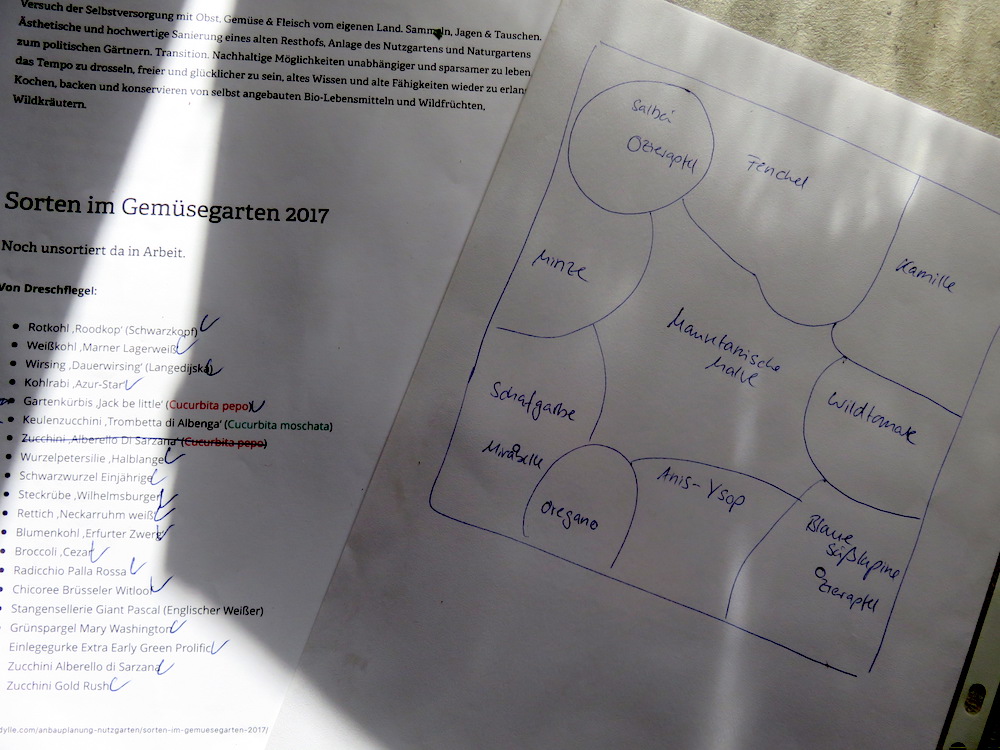 Versuch der Selbstversorgung mit Obst, Gemüse & Fleisch vom eigenen Land. Sammeln, Jagen & Tauschen.
Ästhetische und hochwertige Sanierung eines alten Resthofs, Anlage des Nutzgartens und Naturgartens
zum politischen Gärtnern. Transition. Nachhaltige Möglichkeiten unabhängiger und sparsamer zu leben,
das Tempo zu drosseln, freier und glücklicher zu sein, altes Wissen und alte Fähigkeiten wieder zu erlan
Kochen, backen und konservieren von selbst angebauten Bio-Lebensmitteln und Wildfrüchten,
Wildkräutern.
Sorten im Gemüsegarten 2017
Noch unsortiert da in Arbeit.
Von Dreschflegel:
Rotkohl ‚Roodkop' (Schwarzkopf)
Weißkohl ‚Marner Lagerweiß
Wirsing ‚Dauerwirsing' (Langedijska)
Kohlrabi ‚Azur-Star
Gartenkürbis ‚Jack be little' (Cucurbita pepo)
Keulenzucchini ‚Trombetta di Albenga' (Cucurbita moschata)
Zucchini ‚Alberello Di Sarzana' (Cucurbita pepo)
Wurzelpetersilie ‚Halblange
Schwarzwurzel Einjährige
Steckrübe ‚Wilhelmsburger
Rettich ‚Neckarruhm weiß
Blumenkohl ‚Erfurter Zwerg
Broccoli ‚Cezar
Radicchio Palla Rossa
Chicoree Brüsseler Witloof
Stangensellerie Giant Pascal (Englischer Weißer)
Grünspargel Mary Washington
Einlegegurke Extra Early Green Prolific
Zucchini Alberello di Sarzana
Zucchini Gold Rush
dylle.com/anbauplanung-nutzgarten/sorten-im-gemuesegarten-2017/
Salbei
Ozierapfel
Fenchel
Kamille
Minze
Mauretanische
Malve
Wildtomate
Schafgarbe
Mirabelle
Oregano
Anis-Ysop
Blaue
Süßlupine
Ozierapfel